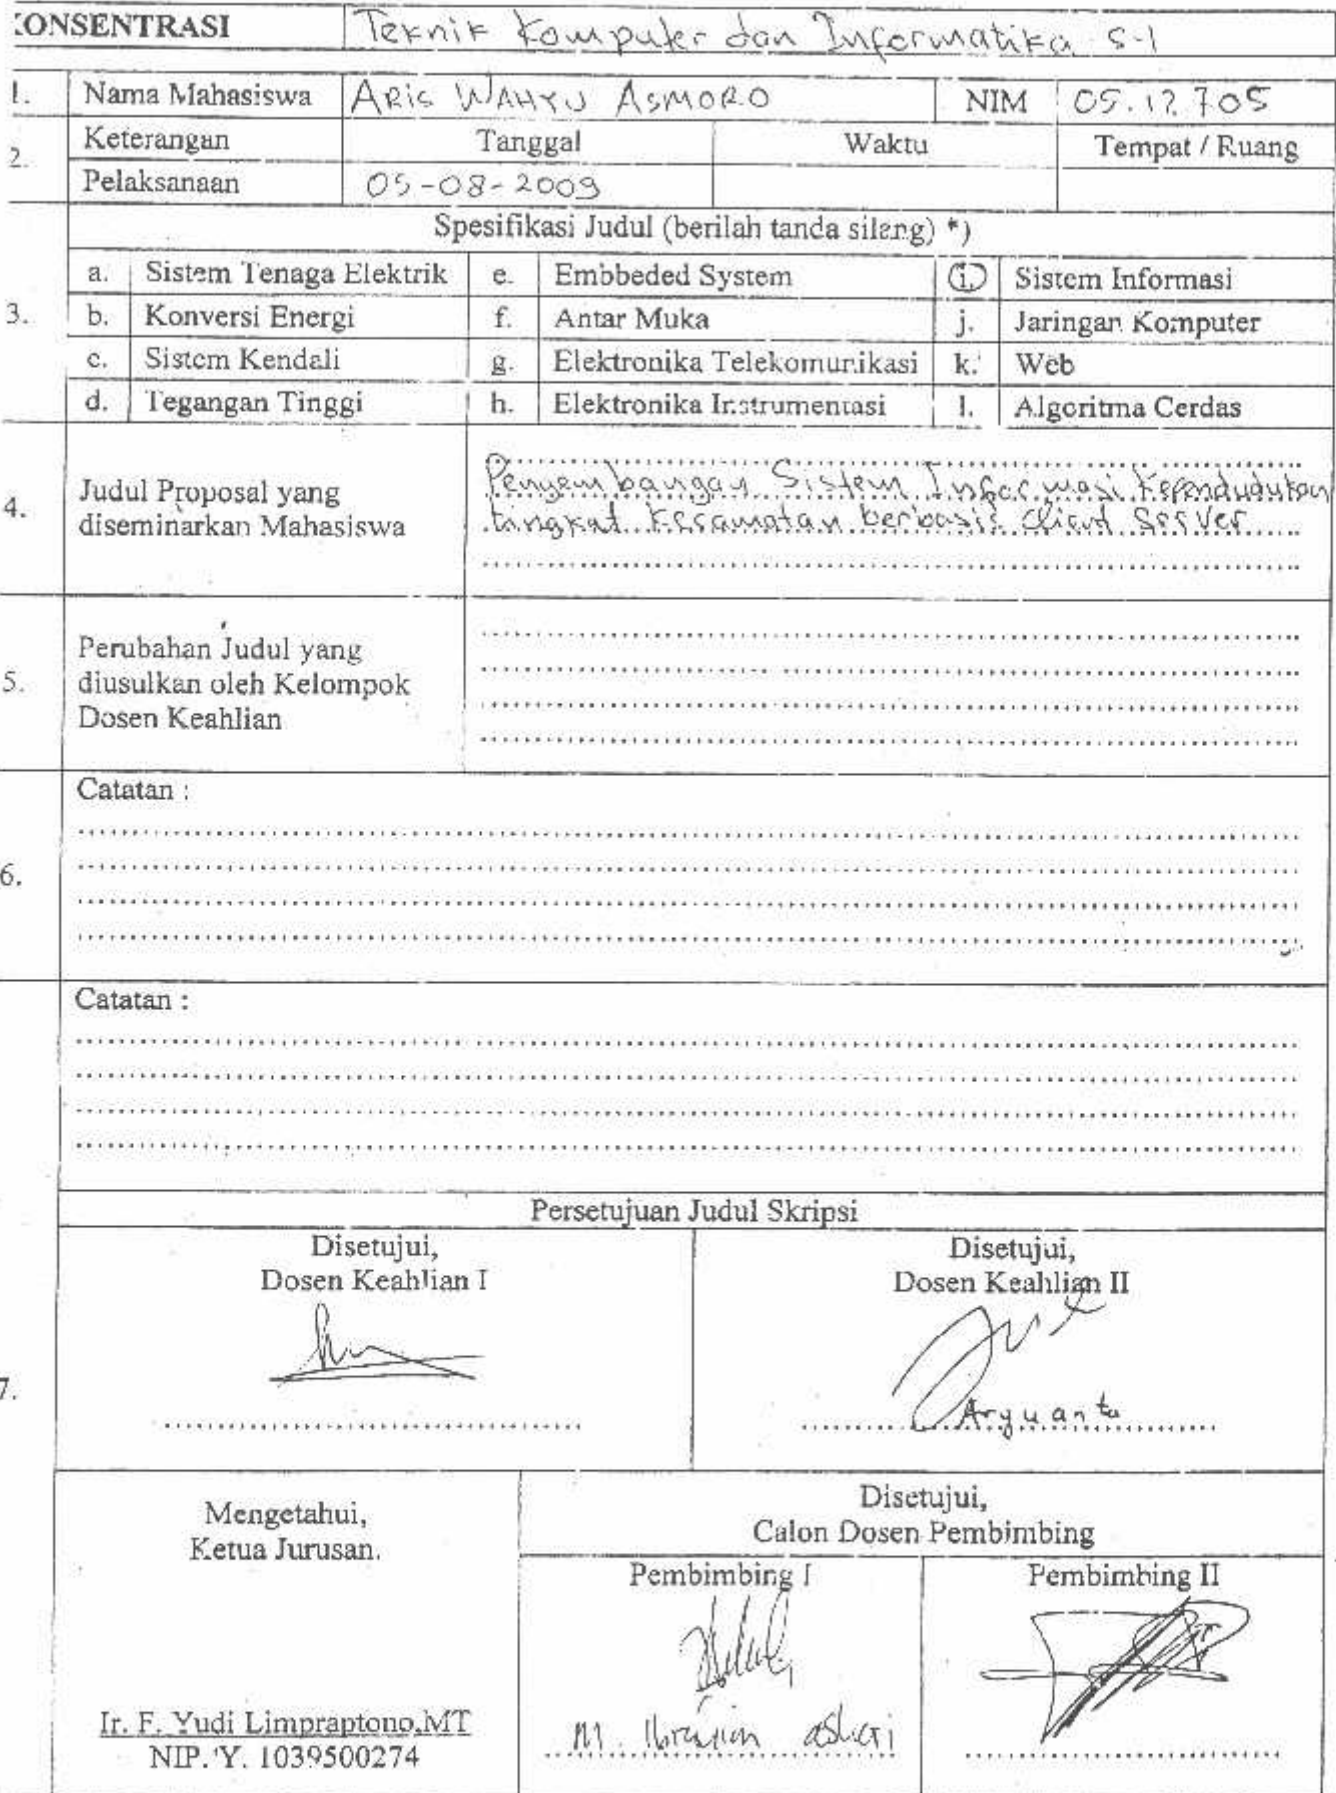 KONSENTRASI Teknik Komputer dan Informatika S-1
1. Nama Mahasiswa ARIS WAHYU ASMORO NIM 05.12.705
2. Keterangan Tanggal Waktu Tempat / Ruang
Pelaksanaan 05-08-2009
3. Spesifikasi Judul (berilah tanda silang) *)
a. Sistem Tenaga Elektrik e. Embbeded System i. Sistem Informasi
b. Konversi Energi f. Antar Muka j. Jaringan Komputer
c. Sistem Kendali g. Elektronika Telekomunikasi k. Web
d. Tegangan Tinggi h. Elektronika Instrumentasi l. Algoritma Cerdas
4. Judul Proposal yang
diseminarkan Mahasiswa
Pengembangan Sistem Informasi Kependudukan
tingkat Kecamatan berbasis Client Server
5. Perubahan Judul yang
diusulkan oleh Kelompok
Dosen Keahlian
6. Catatan :
Catatan :
7. Persetujuan Judul Skripsi
Disetujui,
Dosen Keahlian I
Disetujui,
Dosen Keahlian II
Aryuanto
Mengetahui,
Ketua Jurusan.
Ir. F. Yudi Limpraptono,MT
NIP. Y. 1039500274
Disetujui,
Calon Dosen Pembimbing
Pembimbing I
M. Ibrahim ashari
Pembimbing II